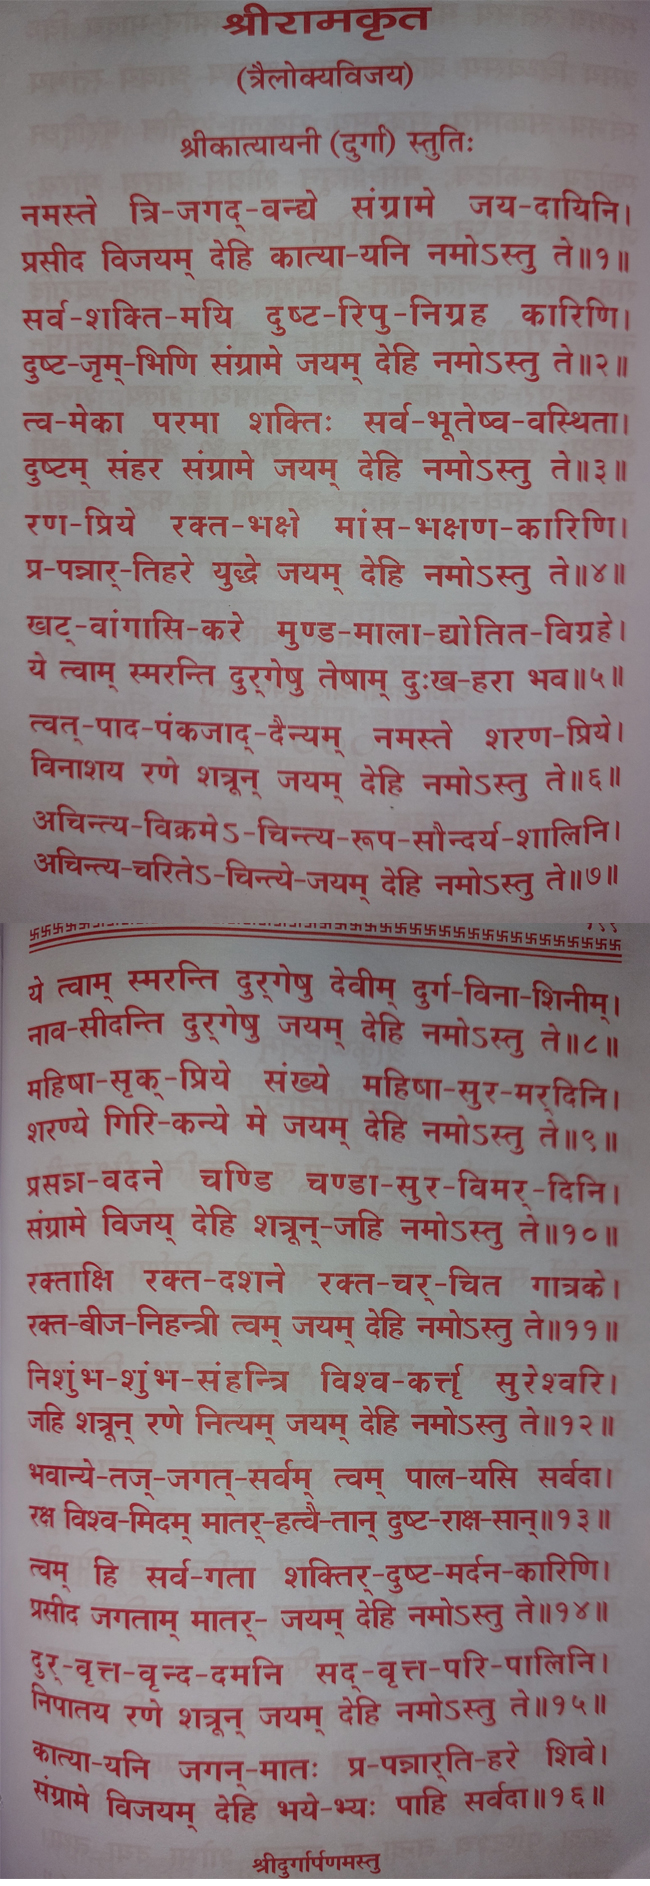 श्रीरामकृत
(त्रैलोक्यविजय)
श्रीकात्यायनी (दुर्गा) स्तुतिः
नमस्ते त्रि-जगद्-वन्द्ये संग्रामे जय-दायिनि।
प्रसीद विजयम् देहि कात्या-यनि नमोऽस्तु ते॥१॥
सर्व-शक्ति-मयि दुष्ट-रिपु-निग्रह कारिणि।
दुष्ट-जृम्-भिणि सग्रामे जयम् देहि नमोऽस्तु ते॥२॥
त्व-मेका परमा शक्तिः सर्व-भूतेष्व-वस्थिता।
दुष्टम् संहर संग्रामे जयम् देहि नमोऽस्तु ते॥३॥
रण-प्रिये रक्त-भक्षे मांस-भक्षण-कारिणि।
प्र-पन्नार्-तिहरे युद्धे जयम् देहि नमोऽस्तु ते॥४॥
खट्-वांगासि-करे मुण्ड-माला-द्योतित-विग्रहे।
ये त्वाम् स्मरन्ति दुर्‌गेषु तेषाम् दुःख-हरा भव॥५॥
त्वत्-पाद-पंकजाद्-दैन्यम् नमस्ते शरण-प्रिये।
विनाशय रणे शत्रून् जयम् देहि नमोऽस्तु ते॥६॥
अचिन्त्य-विक्रमेऽ-चिन्त्य-रूप-सौन्दर्य-शालिनि।
अचिन्त्य-चरितेऽ-चिन्त्ये-जयम् देहि नमोऽस्तु ते॥७॥
ये त्वाम् स्मरन्ति दुर्‌गेषु देवीम् दुर्ग-विना-शिनीम्।
नाव-सीदन्ति दुर्‌गेषु जयम् देहि नमोऽस्तु ते॥८॥
महिषा-सृक्-प्रिये संख्ये महिषा-सुर-मर्‌दिनि।
शरण्ये गिरि-कन्ये मे जयम् देहि नमोऽस्तु ते॥९॥
प्रसन्न-वदने चण्डि चण्डा-सुर-विमर्-दिनि।
संग्रामे विजय् देहि शत्रून्-जहि नमोऽस्तु ते॥१०॥
रक्ताक्षि रक्त-दशने रक्त-चर्-चित गात्रके।
रक्त-बीज-निहन्त्री त्वम् जयम् देहि नमोऽस्तु ते॥११॥
निशुंभ-शुंभ-संहन्त्रि विश्व-कर्त्तृ सुरेश्वरि।
जहि शत्रून् रणे नित्यम् जयम् देहि नमोऽस्तु ते॥१२॥
भवान्ये-तज्-जगत्-सर्वम् त्वम् पाल-यसि सर्वदा।
रक्ष विश्व-मिदम् मातर्-हत्वै-तान् दुष्ट-राक्ष-सान्॥१३॥
त्वम् हि सर्व-गता शक्तिर्-दुष्ट-मर्दन-कारिणि।
प्रसीद जगताम् मातर्- जयम् देहि नमोऽस्तु ते॥१४॥
दुर्-वृत्त-वृन्द-दमनि सद्-वृत्त-परि-पालिनि।
निपातय रणे शत्रून् जयम् देहि नमोऽस्तु ते॥१५॥
कात्या-यनि जगन्-मातः प्र-पन्नार्‌ति-हरे शिवे।
संग्रामे विजयम् देहि भये-भ्यः पाहि सर्वदा॥१६॥
श्रीदुर्गार्पणमस्तु